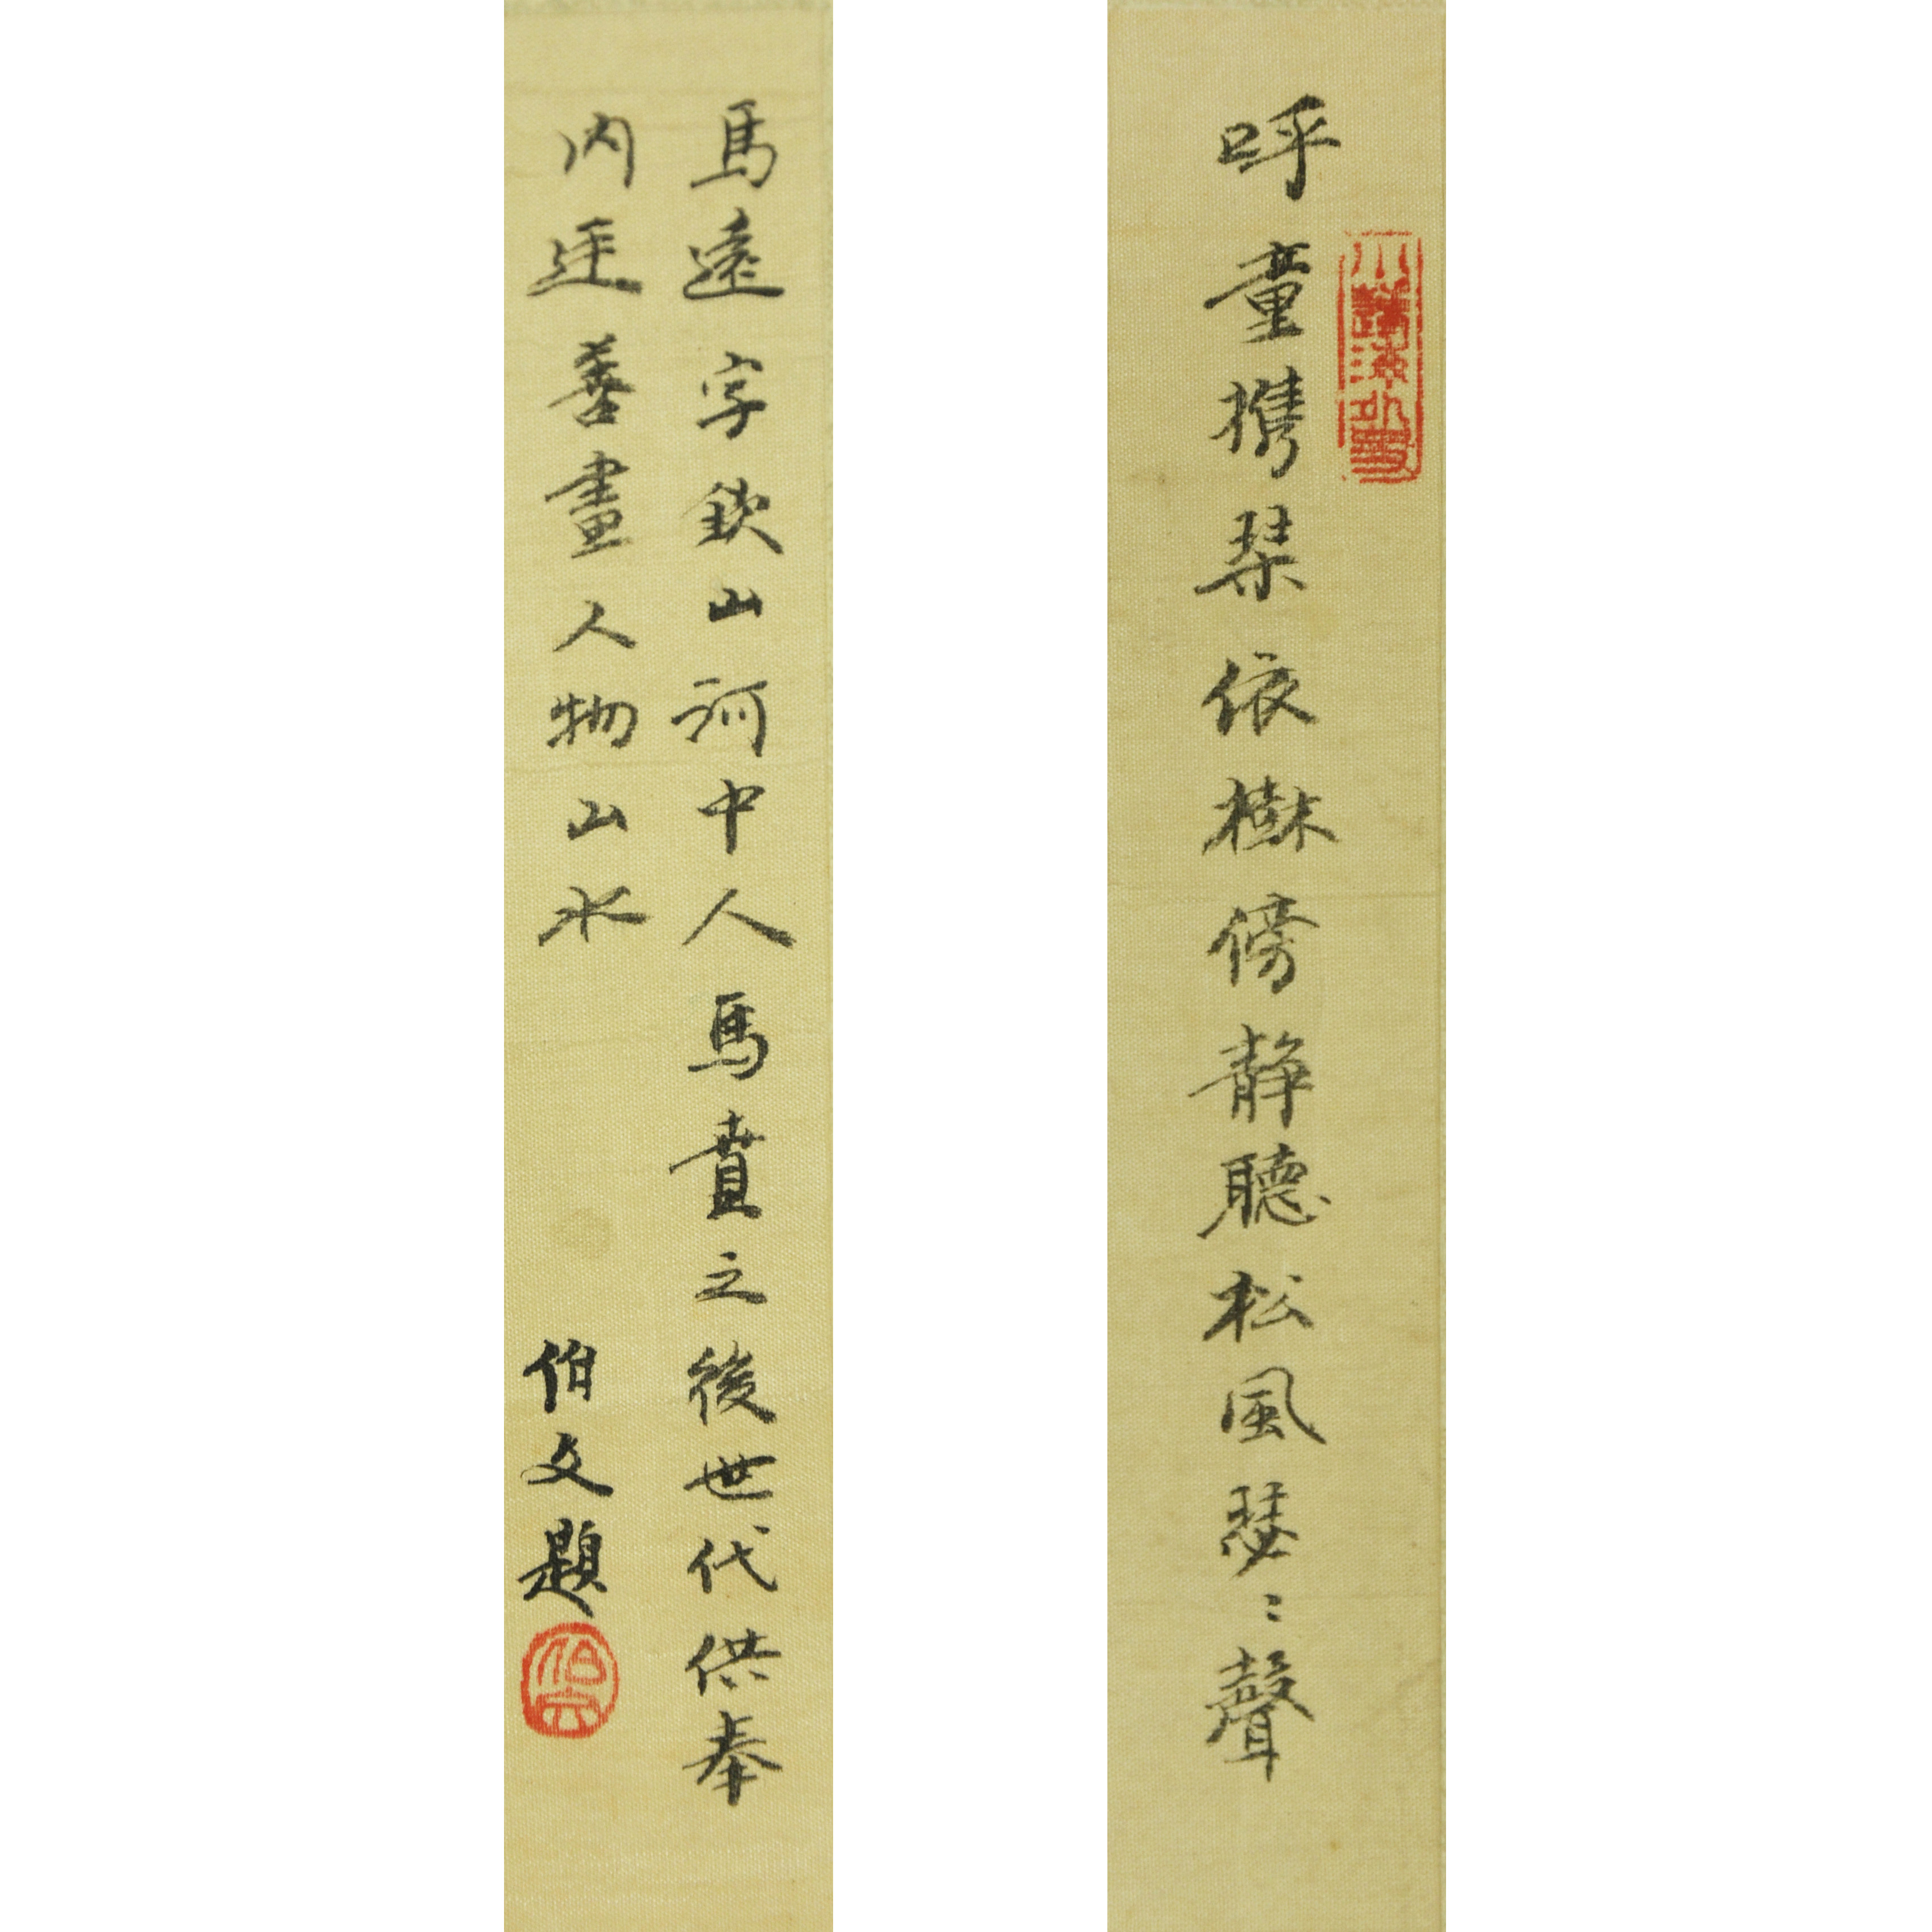 呼童携琴依樹傍靜聽松風瑟〻聲
馬遠字欽山河中人馬賁之後世代供奉
内廷善畫人物山水
伯文題